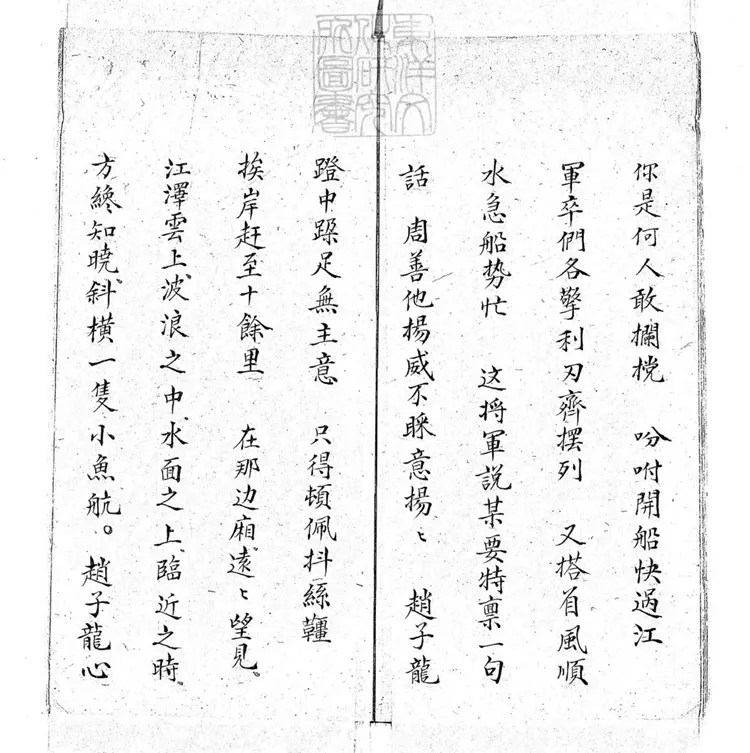 你是何人敢攔攩 吩咐開船快過江
軍卒們各擎利刃齊擺列 又搭着風順
水急船势忙 这將軍説某要特禀一句
話 周善他揚威不睬意揚〻 趙子龍
蹬中跺足無主意 只得頓佩抖絲韁
挨岸赶至十餘里 在那边廂遠〻望見。
江澤雲上波浪之中水面之上臨近之時。
方纔知曉斜橫一隻小魚航。趙子龍心